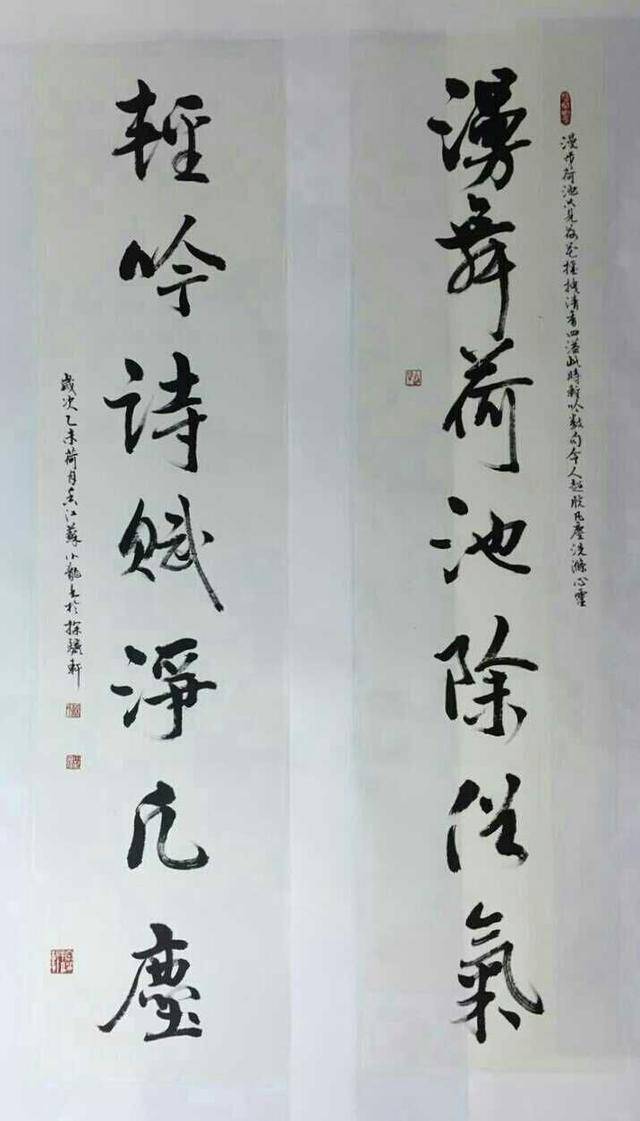 漫步荷池只見荷花搖拽清香四溢此時輕吟數句令人超脫凡塵洗滌心靈
漫舞荷池除俗氣
輕吟詩賦淨凡塵
歲次乙未荷月香江蘇小龍書於探驪軒